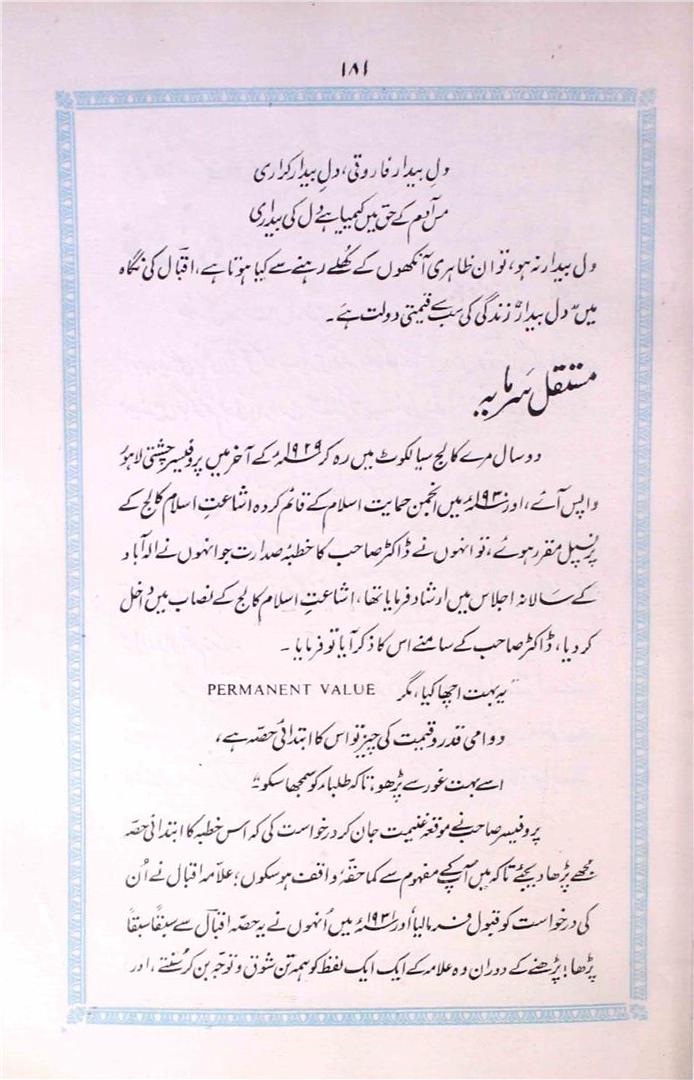 ۱۸۱
دلِ بیدار فاروقی، دلِ بیدار کراری
مسِ آدم کے حق میں کیمیا ہے دل کی بیداری
دل بیدار نہ ہو، تو ان ظاہری آنکھوں کے کھلے رہنے سے کیا ہوتا ہے، اقبال کی نگاہ
میں "دل بیدار" زندگی کی سب سے قیمتی دولت ہے۔
مستقل سرمایہ
دو سال مرے کالج سیالکوٹ میں رہ کر ۱۹۲۹ء کے آخر میں پروفیسر چشتی لاہور
واپس آئے، اور ۱۹۳۰ء میں انجمن حمایت اسلام کے قائم کردہ اشاعتِ اسلام کالج کے
پرنسپل مقرر ہوئے، تو انہوں نے ڈاکٹر صاحب کا خطبۂ صدارت جو انہوں نے الہ آباد
کے سالانہ اجلاس میں ارشاد فرمایا تھا، اشاعتِ اسلام کالج کے نصاب میں داخل
کر دیا، ڈاکٹر صاحب کے سامنے اس کا ذکر آیا تو فرمایا۔
"یہ بہت اچھا کیا، مگر PERMANENT VALUE
دوامی قدر و قیمت کی چیز تو اس کا ابتدائی حصہ ہے،
اسے بہت غور سے پڑھو، تاکہ طلباء کو سمجھا سکو"
پروفیسر صاحب نے موقعہ غنیمت جان کر درخواست کی کہ اس خطبہ کا ابتدائی حصہ
مجھے پڑھا دیجئے تاکہ میں آپ کے مفہوم سے کما حقہٗ واقف ہو سکوں؛ علامہ اقبال نے اُن
کی درخواست کو قبول فرمالیا اور ۱۹۳۱ء میں اُنھوں نے یہ حصہ اقبال سے سبقاً سبقاً
پڑھا؛ پڑھنے کے دوران وہ علامہ کے ایک ایک لفظ کو ہمہ تن شوق و توجہ بن کر سُنتے، اور